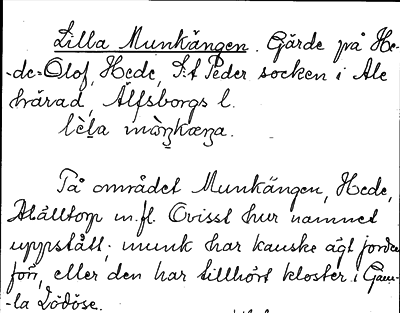 Lilla Munkängen. Gärde på He-
-de-Olof, Hede, S:t Peder socken i Ale
härad, Älfsborgs l.

På området Munkängen, Hede,
m. fl. Ovisst hur namnet
uppstått; munk har kanske ägt jorden
förr, eller den har tillhört kloster i Gam-
-la Lödöse.